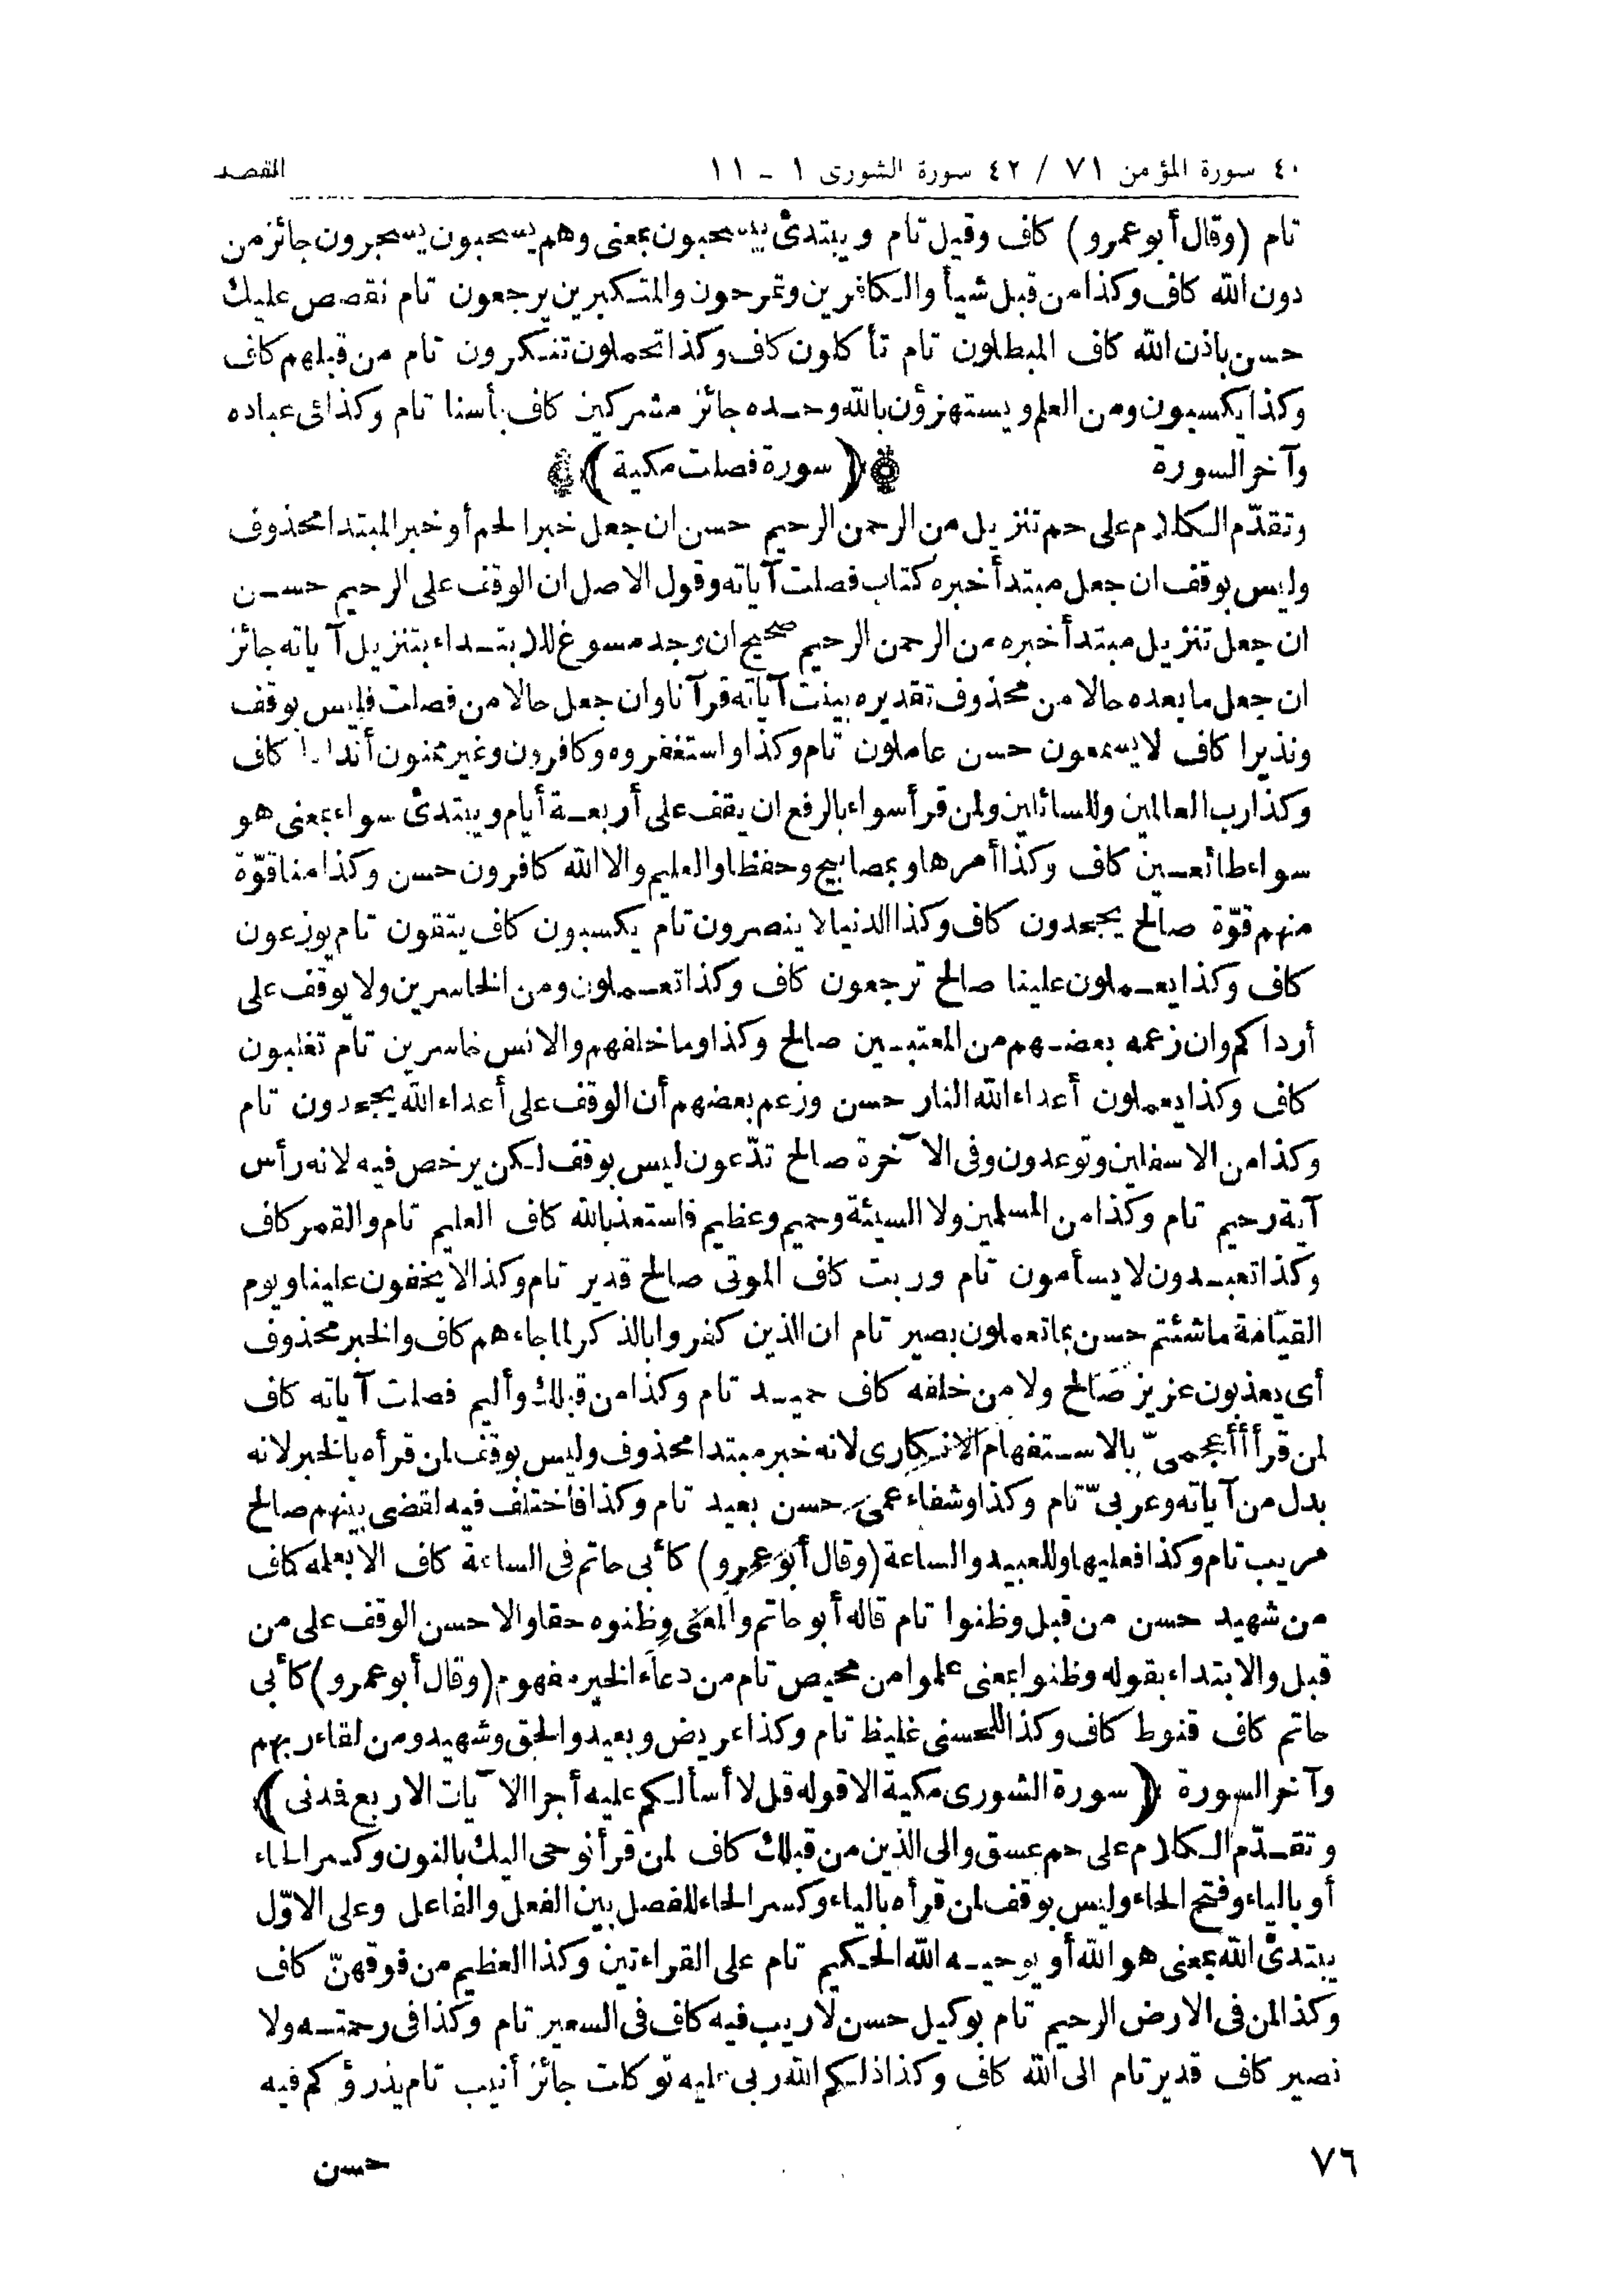 ٤٠ سورة المؤمن ٧١ / ٤٢ سورة الشورى ١ - ١١ المقصد
تام (وقال أبو عمرو) كاف وقيل تام ويبتدئ بيسحبون بمعنى وهم يسحبون يسجرون جائز من
دون الله كاف وكذا من قبل شيأ والكافرين وتمرحون والمتكبرين يرجعون تام نقصص عليك
حسن باذن الله كاف المبطلون تام تأكلون كاف وكذا تحملون تنكرون تام من قبلهم كاف
وكذا يكسبون ومن العلم ويستهزؤن بالله وحده جائز مشركين كاف بأسنا تام وكذا فى عباده
وآخر السورة ﴿سورة فصلت مكية﴾
وتقدّم الكلام على حم تنزيل من الرحمن الرحيم حسن ان جعل خبرا لحم أو خبر المبتدا محذوف
وليس بوقف ان جعل مبتدأ خبره كتاب فصلت آياته وقول الاصل ان الوقف على الرحيم حسن
ان جعل تنزيل مبتدأ خبره من الرحمن الرحيم صحيح ان وجد مسوغ للابتداء بتنزيل آياته جائز
ان جعل ما بعده حالا من محذوف تقديره بينت آياته قرآنا وان جعل حالا من فصلت فليس بوقف
ونذيرا كاف لا يسمعون حسن عاملون تام وكذا واستغفروه وكافرون وغير ممنون أندادا كاف
وكذا رب العالمين وللسائلين ولمن قرأ سواء بالرفع ان يقف على أربعة أيام ويبتدئ سواء بمعنى هو
سواء طائعين كاف وكذا أمرها وبمصابيح وحفظا والعليم والا الله كافرون حسن وكذا منا قوّة
منهم قوّة صالح يجحدون كاف وكذا الدنيا لا ينصرون تام يكسبون كاف يتقون تام يوزعون
كاف وكذا يعملون علينا صالح ترجعون كاف وكذا تعملون ومن الخاسرين ولا يوقف على
أرداكم وان زعمه بعضهم من المعتبين صالح وكذا وما خلفهم والانس خاسرين تام تغلبون
كاف وكذا يعملون أعداء الله النار حسن وزعم بعضهم أن الوقف على أعداء الله يجحدون تام
وكذا من الاسفلين وتوعدون وفى الآخرة صالح تدّعون ليس بوقف لكن يرخص فيه لانه رأس
آية رحيم تام وكذا من المسلمين ولا السيئة وحميم وعظيم فاستعذ بالله كاف العليم تام والقمر كاف
وكذا تعبدون لا يسأمون تام وربت كاف الموتى صالح قدير تام وكذا لا يخفون علينا ويوم
القيامة ما شئتم حسن بما تعملون بصير تام ان الذين كفروا بالذكر لما جاءهم كاف والخبر محذوف
أى يعذبون عزيز صالح ولا من خلفه كاف حميد تام وكذا من قبلك وأليم فصلت آياته كاف
لمن قرأ أأعجمىّ بالاستفهام الانكارى لانه خبر مبتدا محذوف وليس بوقف لمن قرأه بالخبر لانه
بدل من آياته وعربىّ تام وكذا وشفاء عمى حسن بعيد تام وكذا فاختلف فيه لقضى بينهم صالح
مريب تام وكذا فعليها وللعبيد والساعة (وقال أبو عمرو) كأبى حاتم فى الساعة كاف الا بعلمه كاف
من شهيد حسن من قبل وظنوا تام قاله أبو حاتم والمعنى وظنوه حقا والاحسن الوقف على من
قبل والابتداء بقوله وظنوا بمعنى علموا من محيص تام من دعاء الخير مفهوم (وقال أبو عمرو) كأبى
حاتم كاف قنوط كاف وكذا للحسنى غليظ تام وكذا عريض وبعيد والحق وشهيد ومن لقاء ربهم
وآخر السورة ﴿سورة الشورى مكية الا قوله قل لا أسألكم عليه أجرا الآيات الاربع فمدنى﴾
وتقدّم الكلام على حم عسق والى الذين من قبلك كاف لمن قرأ نوحى اليك بالنون وكسر الحاء
أو بالياء وفتح الحاء وليس بوقف لمن قرأه بالياء وكسر الحاء للفصل بين الفعل والفاعل وعلى الاوّل
يبتدئ الله بمعنى هو الله أو يوحيه الله الحكيم تام على القراءتين وكذا العظيم من فوقهنّ كاف
وكذا لمن فى الارض الرحيم تام بوكيل حسن لا ريب فيه كاف فى السعير تام وكذا فى رحمته ولا
نصير كاف قدير تام الى الله كاف وكذا ذلكم الله ربى عليه توكلت جائز أنيب تام يذرؤكم فيه
٧٦ حسن